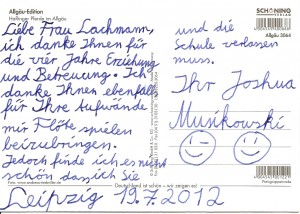 Allgäu-Edition
Haflinger Pferde im Allgäu
SCHÖNING
Allgäu 3064
Liebe Frau Lachmann,
ich danke Ihnen für
die vier Jahre Erziehung
und Betreuung. Ich
danke Ihnen ebenfalls
für Ihre Aufwände
mir Flöte spielen
beizubringen.
Jedoch finde ich es nicht
schön dass ich Sie
und die
Schule verlassen
muss.
Ihr Joshua
Musikowski
Deutschland ist schön - wir zeigen es!
Leipzig 13.7.2012